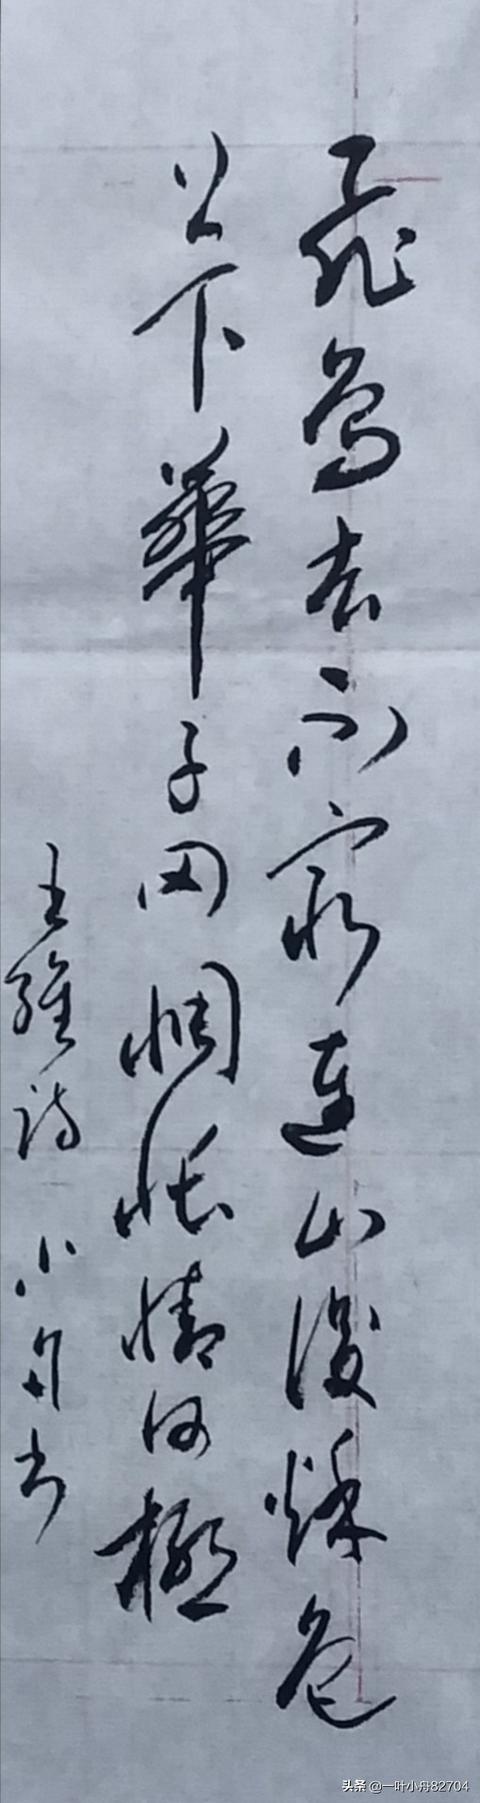 飛鳥去不窮連山復秋色
上下華子岡惆悵情何極
王維詩 小舟書
头条 @一叶小舟82704